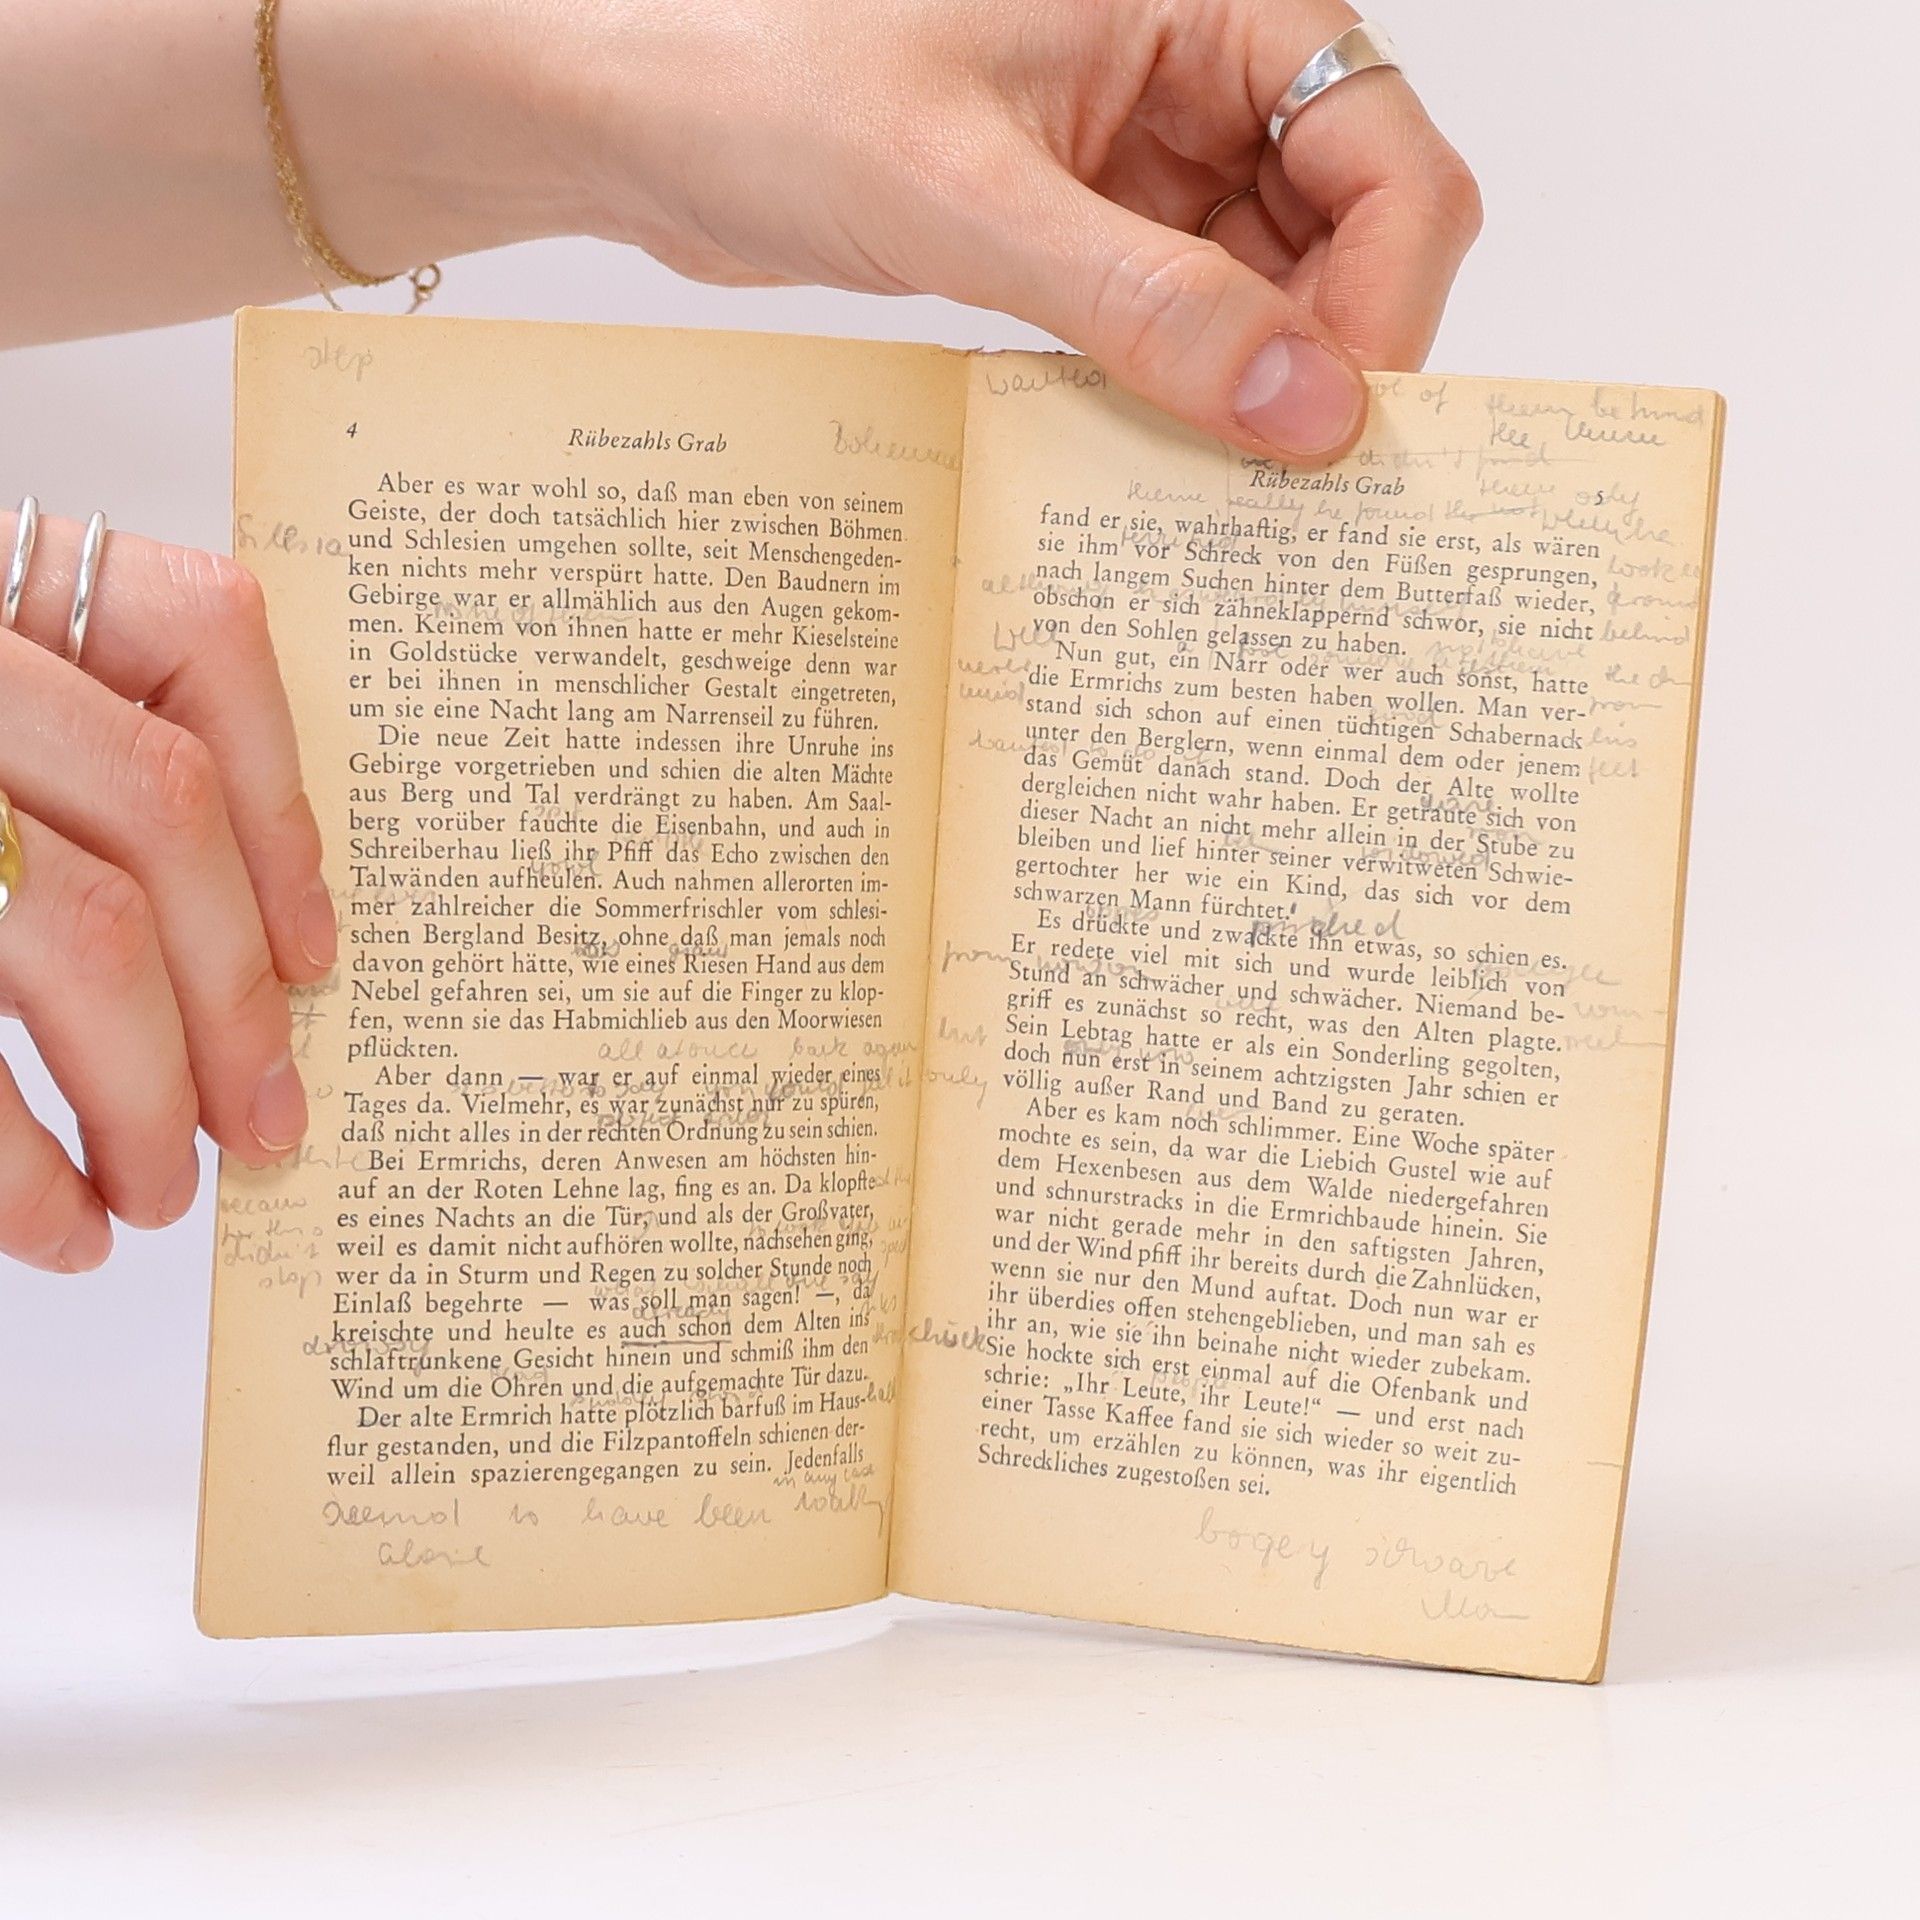 step
4
Rübezahls Grab
Aber es war wohl so, daß man eben von seinem
Geiste, der doch tatsächlich hier zwischen Böhmen
Silesia
und Schlesien umgehen sollte, seit Menschengeden-
ken nichts mehr verspürt hatte. Den Baudnern im
Gebirge war er allmählich aus den Augen gekom-
men. Keinem von ihnen hatte er mehr Kieselsteine
in Goldstücke verwandelt, geschweige denn war
er bei ihnen in menschlicher Gestalt eingetreten,
um sie eine Nacht lang am Narrenseil zu führen.
Die neue Zeit hatte indessen ihre Unruhe ins
Gebirge vorgetrieben und schien die alten Mächte
aus Berg und Tal verdrängt zu haben. Am Saal-
berg vorüber fauchte die Eisenbahn, und auch in
Schreiberhau ließ ihr Pfiff das Echo zwischen den
Talwänden aufheulen. Auch nahmen allerorten im-
mer zahlreicher die Sommerfrischler vom schlesi-
schen Bergland Besitz, ohne daß man jemals noch
davon gehört hätte, wie eines Riesen Hand aus dem
Nebel gefahren sei, um sie auf die Finger zu klop-
fen, wenn sie das Habmichlieb aus den Moorwiesen
pflückten.
all at once back again
Aber dann — war er auf einmal wieder eines
Tages da. Vielmehr, es war zunächst nur zu spüren,
daß nicht alles in der rechten Ordnung zu sein schien.
Bei Ermrichs, deren Anwesen am höchsten hin-
auf an der Roten Lehne lag, fing es an. Da klopfte
es eines Nachts an die Tür, und als der Großvater,
didn't
stop
weil es damit nicht aufhören wollte, nachsehen ging,
wer da in Sturm und Regen zu solcher Stunde noch
Einlaß begehrte — was soll man sagen! —, da
already
kreischte und heulte es auch schon dem Alten ins
drowsy
schlaftrunkene Gesicht hinein und schmiß ihm den
Wind um die Ohren und die aufgemachte Tür dazu.
Der alte Ermrich hatte plötzlich barfuß im Haus-
flur gestanden, und die Filzpantoffeln schienen der-
weil allein spazierengegangen zu sein. Jedenfalls
in any case
to have been
alone
wanted
of them behind
Rübezahls Grab
5
fand er sie, wahrhaftig, er fand sie erst, als wären
sie ihm vor Schreck von den Füßen gesprungen,
nach langem Suchen hinter dem Butterfaß wieder,
obschon er sich zähneklappernd schwor, sie nicht
behind
von den Sohlen gelassen zu haben.
Nun gut, ein Narr oder wer auch sonst, hatte
die Ermrichs zum besten haben wollen. Man ver-
stand sich schon auf einen tüchtigen Schabernack
unter den Berglern, wenn einmal dem oder jenem
feet
das Gemüt danach stand. Doch der Alte wollte
dergleichen nicht wahr haben. Er getraute sich von
dieser Nacht an nicht mehr allein in der Stube zu
bleiben und lief hinter seiner verwitweten Schwie-
gertochter her wie ein Kind, das sich vor dem
schwarzen Mann fürchtet.
pinched
Es drückte und zwackte ihn etwas, so schien es.
Er redete viel mit sich und wurde leiblich von
Stund an schwächer und schwächer. Niemand be-
griff es zunächst so recht, was den Alten plagte.
Sein Lebtag hatte er als ein Sonderling gegolten,
doch nun erst in seinem achtzigsten Jahr schien er
only
völlig außer Rand und Band zu geraten.
Aber es kam noch schlimmer. Eine Woche später
mochte es sein, da war die Liebich Gustel wie auf
dem Hexenbesen aus dem Walde niedergefahren
und schnurstracks in die Ermrichbaude hinein. Sie
war nicht gerade mehr in den saftigsten Jahren,
und der Wind pfiff ihr bereits durch die Zahnlücken,
wenn sie nur den Mund auftat. Doch nun war er
ihr überdies offen stehengeblieben, und man sah es
ihr an, wie sie ihn beinahe nicht wieder zubekam.
Sie hockte sich erst einmal auf die Ofenbank und
schrie: „Ihr Leute, ihr Leute!“ — und erst nach
einer Tasse Kaffee fand sie sich wieder so weit zu-
recht, um erzählen zu können, was ihr eigentlich
Schreckliches zugestoßen sei.
bogey